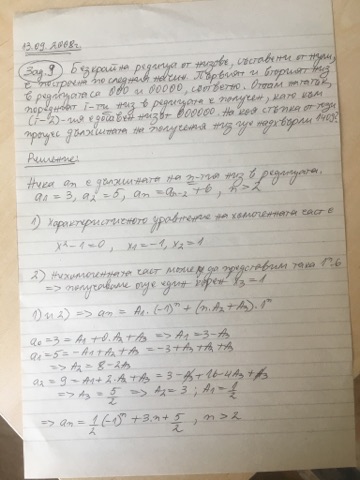 13.09.2008г.
Зад.9 Безкрайна редица от низове, съставени от нули,
е построена по следния начин. Първият и вторият низ
в редицата са 000 и 00000, съответно. Оттам нататък,
поредният i-ти низ в редицата е получен, като към
(i-2)-ия е добавен низът 000000. На коя стъпка от този
процес дължината на получения низ ще надхвърли
Решение:
Нека an е дължината на n-тия низ в редицата.
a1 = 3, a2 = 5, an = an-2 + 6, n > 2
1) Характеристичното уравнение на хомогенната част е
x² - 1 = 0, x1 = -1, x2 = 1
2) Нехомогенната част може да представим така 1ⁿ.6
=> получаваме още един корен x3 = 1
1) и 2) => an = A1.(-1)ⁿ + (n.A2 + A3).1ⁿ
a0 = 3 = A1 + 0.A2 + A3 => A1 = 3 - A3
a1 = 5 = -A1 + A2 + A3 = -3 + A3 + A2 + A3
=> A2 = 8 - 2A3
a2 = 9 = A1 + 2.A2 + A3 = 3 - A3 + 16 - 4A3 + A3
=> A3 = 5/2 => A2 = 3; A1 = 1/2
=> an = 1/2 (-1)ⁿ + 3.n + 5/2, n > 2